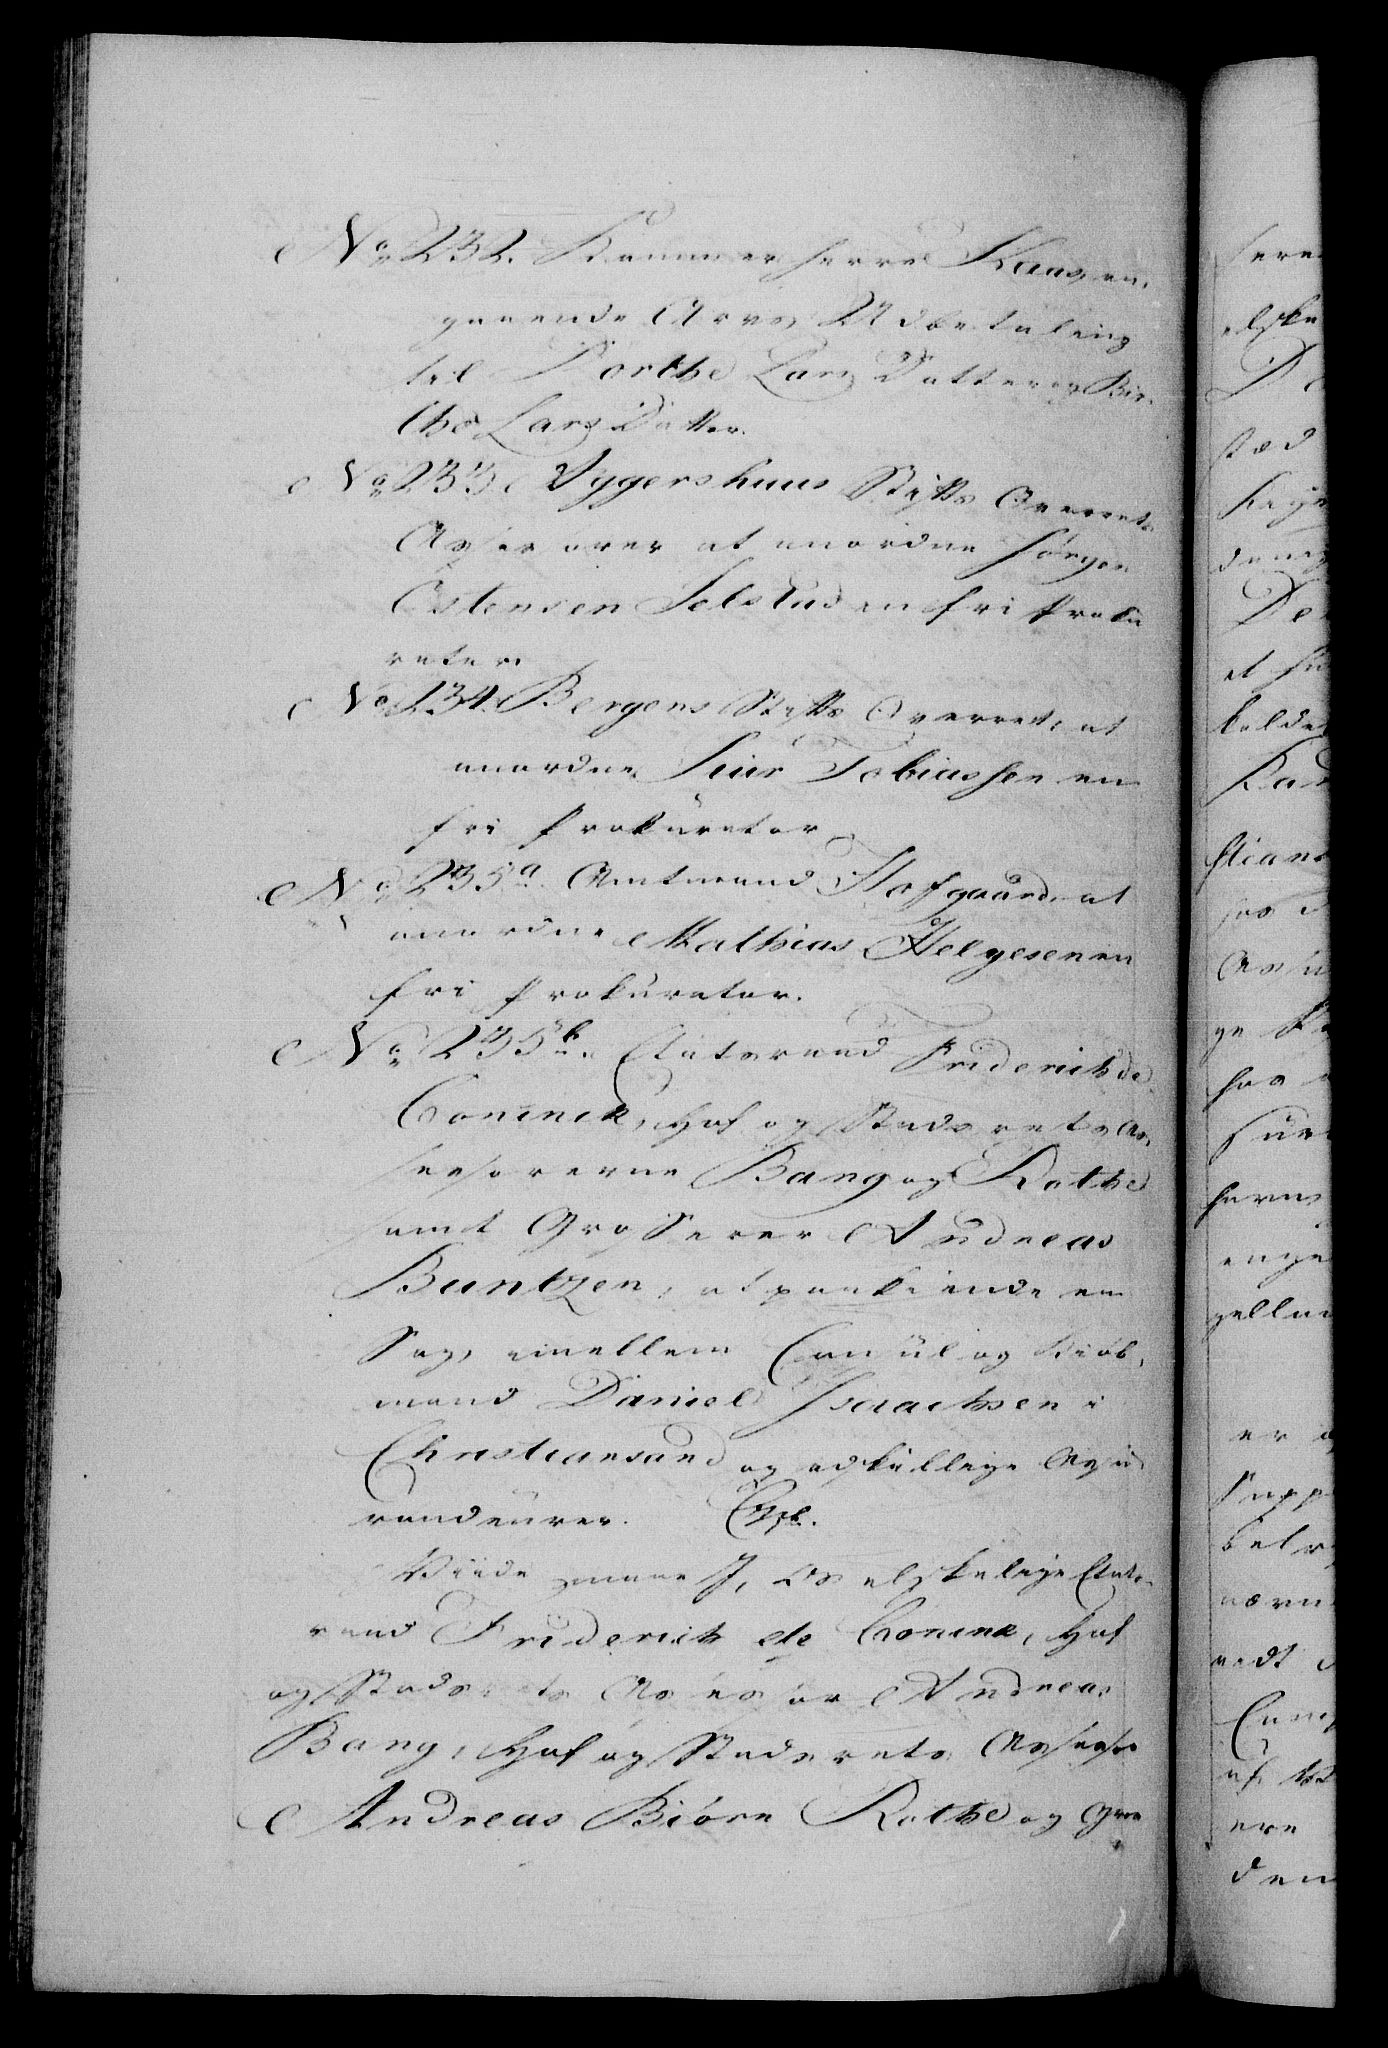 No 232. Kammerherre Kaas, an-
gaaende Arvs Udbetaling
til Dorthe Lars Datter og Bir-
the Lars Datter.
No 233. Aggershuus Stifts Overrets
at anordne Jørgen
Ostensen Selstad en fri Proku
rator.
No 234. Bergens Stifts Overret, at
anordne Siur Tobiassen en
fri Prokurator
No 235a. Amtmand Hofgaard at
anordne Mathias Helgesen en
fri Prokurator.
No 235b. Etatsraad Friderich de
Coninck, Hof og Stadsrets As-
sessorerne Bang og Rothe
samt Grosserer Andreas
Buntzen, at paakiende en
Sag, imellem Consul og Kiøb-
mand Daniel Isaachsen i
Christiansand og adskillige Assu
randeurer. Cph.
Viide maae I, Os elskelige Etats-
raad Friderich de Conink, Hof
og Stadsrets Assessor Andreas
Bang, Hof og Stadsrets Assessor
Andreas Biörn Rothe og Gros